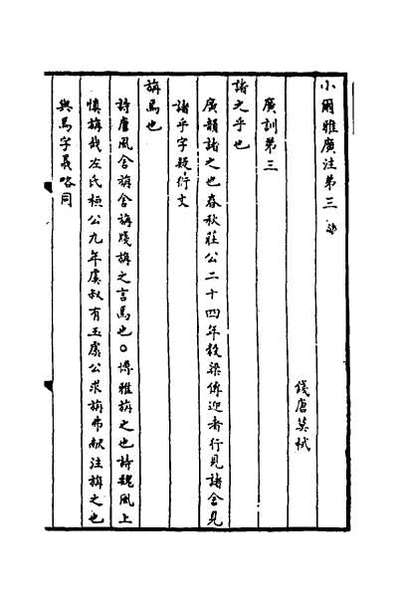 小爾雅廣注第三
錢唐莫栻
廣訓第三
諸之乎也
廣韻諸之也春秋莊公二十四年穀梁傳迎者行見諸舍見
諸乎字疑衍文
旃焉也
詩唐風舍旃舍旃箋旃之言焉也○博雅旃之也詩魏風上
慎旃哉左氏桓公九年虞叔有玉虞公求旃弗献注旃之也
與焉字義略同